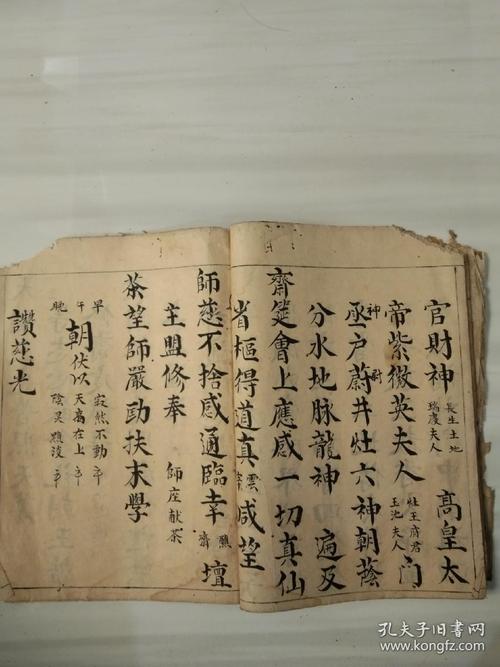 官財神 長生土地 瑞慶夫人 高皇太
帝紫微英夫人 灶王府君 玉池夫人 門
丞户尉井灶六神朝蔭
神 尉
分水地脉龍神 遍及
齋筵會上應感一切真仙
省樞得道真 雲 咸望
師慈不捨感通臨幸 醮 齋 壇
主盟修奉 師座献茶
茶望師嚴励扶末學
早 午 晚 朝伏以 寂然不動 天高在上 陰灵
讚慈光
孔夫子旧書网
www.kongfz.com